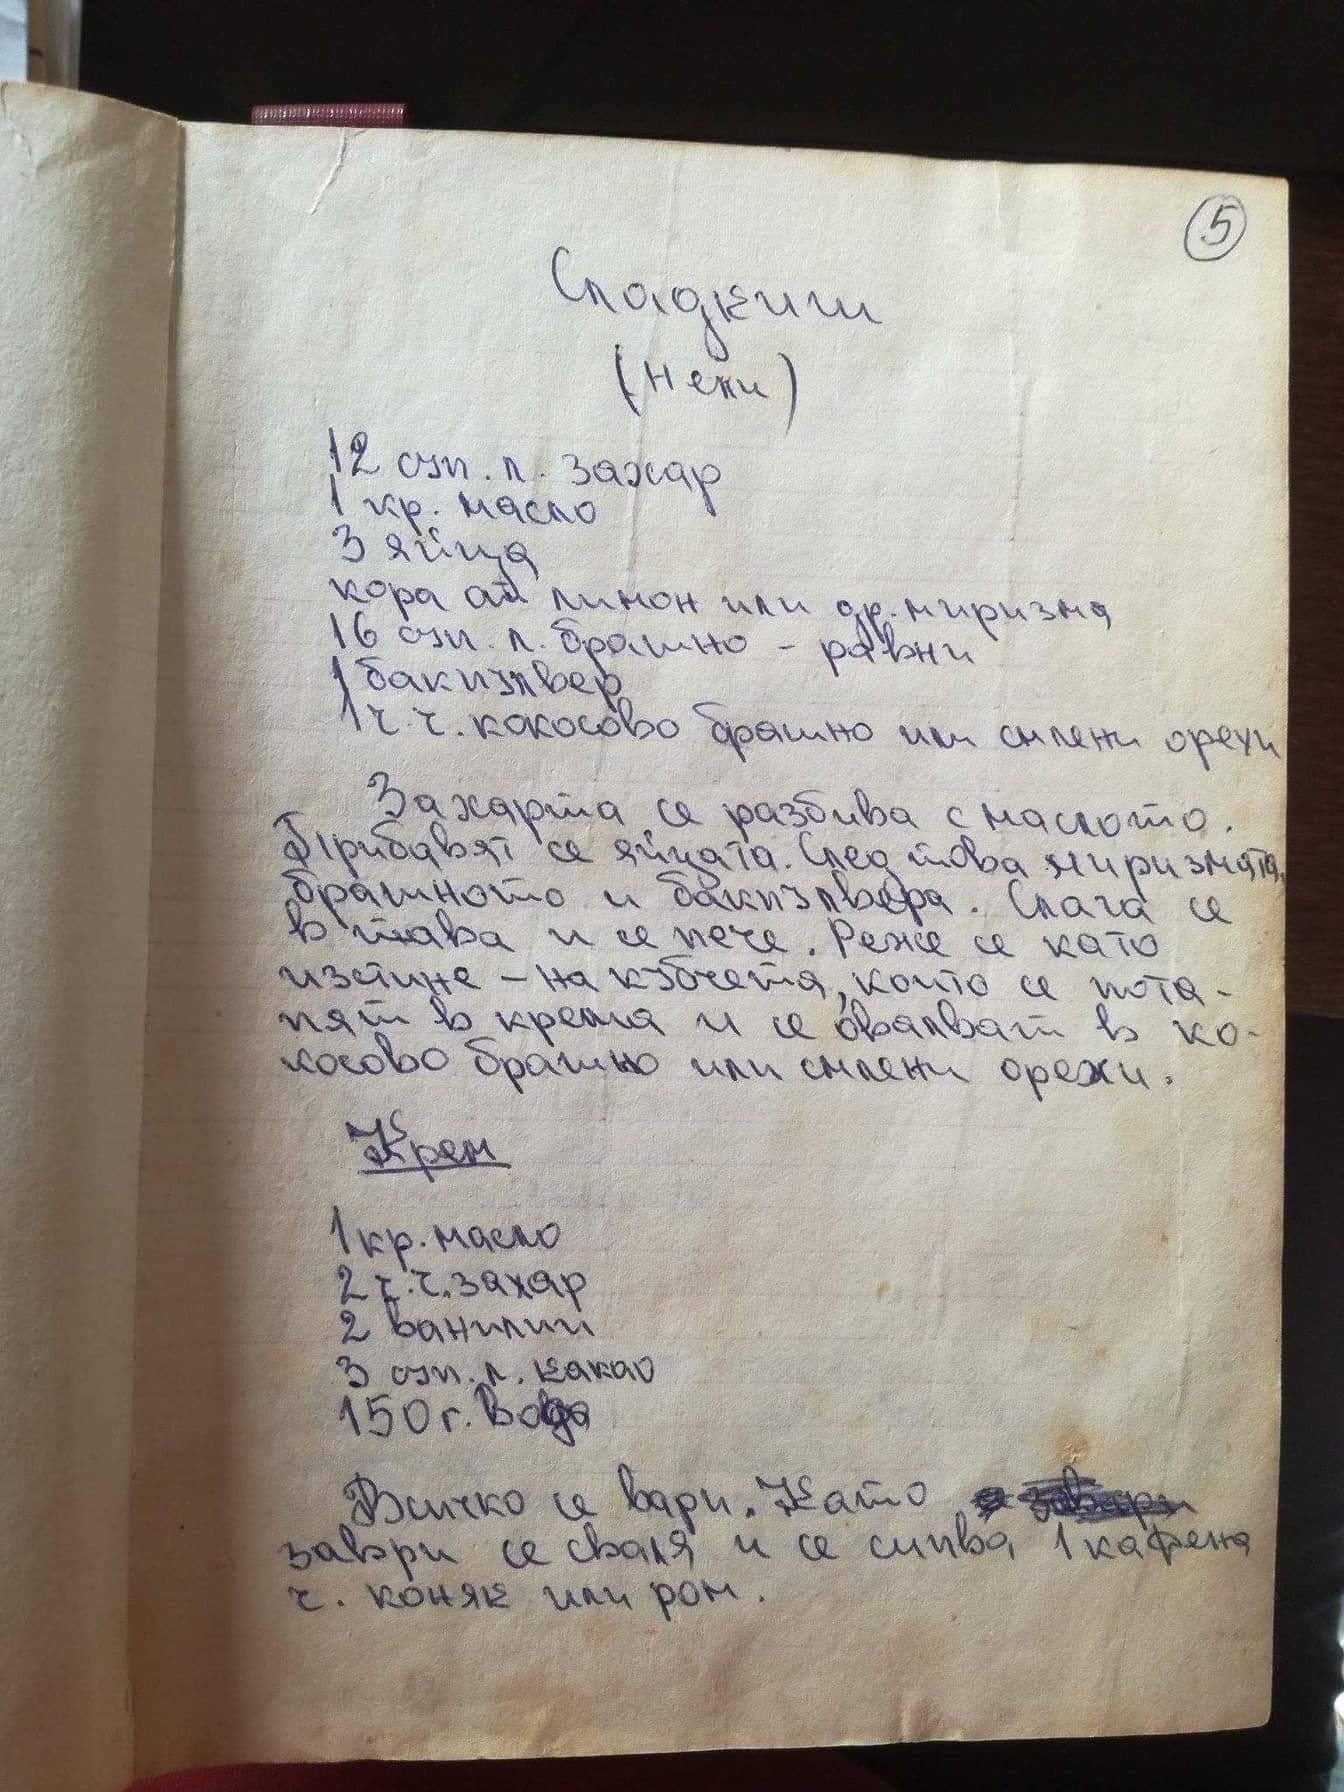 5
Сладкиш
(Нели)
12 суп. л. захар
1 кр. масло
3 яйца
кора от лимон или др. миризма
16 суп. л. брашно - равни
1 бакпулвер
1 ч. ч. кокосово брашно или смлени орехи
Захарта се разбива с маслото.
Прибавят се яйцата. След това миризмата,
брашното и бакпулвера. Слага се
в тава и се пече. Реже се като
изстине - на кубчета, които се пота-
пят в крема и се овалват в ко-
косово брашно или смлени орехи.
Крем
1 кр. масло
2 ч. ч. захар
2 ванилии
3 суп. л. какао
150 г. вода
Всичко се вари. Като
заври се сваля и се сипва 1 кафена
ч. коняк или ром.